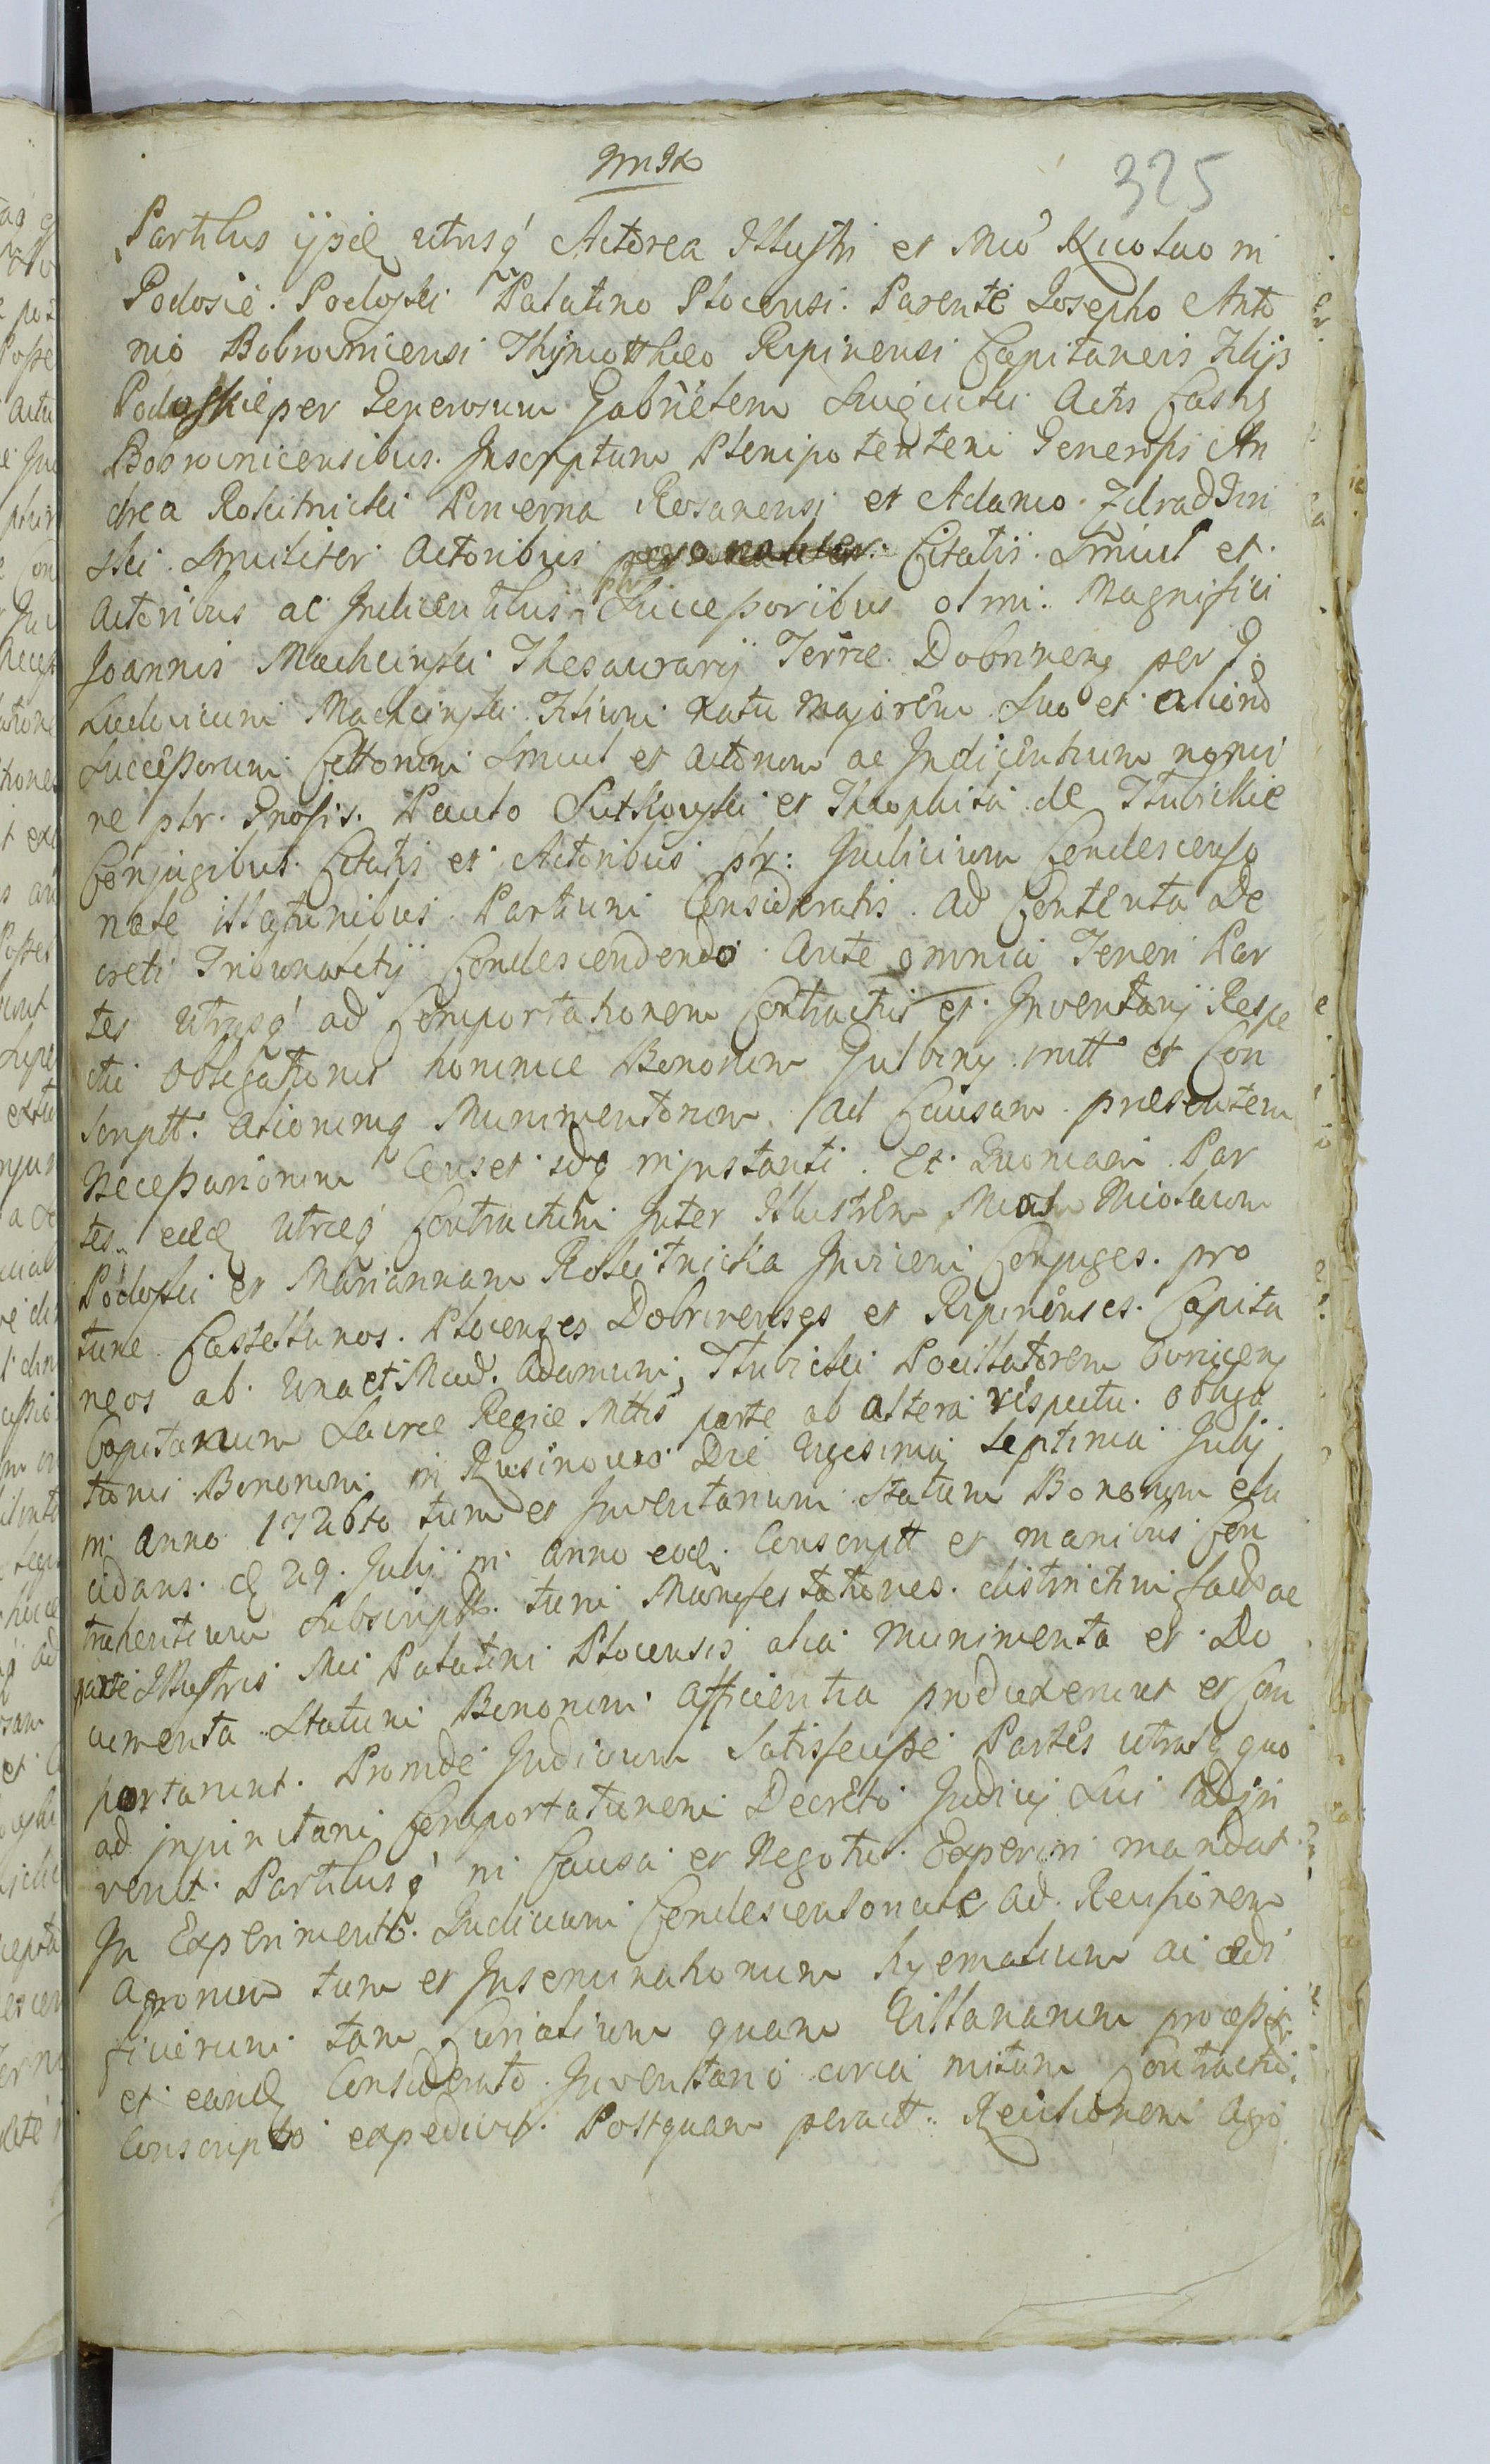 325
Partibus ijsdē utrisq́ Actorea Illustri et Mcō Nicolao in
Podosie Podoski Palatino Plocensi Parente Josepho Anto
nio Bobrownicensi Thymottheo Rypinensi Capitaneis Filijs
Podoskie per Generosum Gabrielem Actis Casts
Bobrownicensibus Inscriptum Plenipotentem Generosis An
drea Rościmicki Pincerna Rosanensi et Adamo
ski Similiter Actoribus Citatis Simul et
Actoribus ac Indicentibus Successoribus olim Magnifici
Joannis Machcinski Thesaurarij Terræ Dobrinens per G.
Ludovicum Machcinski Filium natu majorem suo et aliorō
Successorum Cittorum Simul et Actorum ac Indicentium nomi
ne ptr. Gnosis. Paulo Sutkowski et Theophila de
Conjugibus Citatis et Actoribus ptr: Judicium Condescenso
riale illationibus Partium Consideratis ad Contenta De
creti Tribunalitij Condescendendo Ante omnia Teneri Par
tes utrasq́ ad Comportationem Contractus et Inventarij Respe
ctu Obligationis Bonorum Gulbiny initt et Con
scriptt. aliorumq Munimentorum ad Causam præsentem
Necessariorum Censet idq in justanti. Et Quoniam Par
tes eædē utræq́ Contractum Inter Illustrem Mcūm Nicolaum
Podoski et Mariannam Rościmicka Invicem Conjuges pro
tunc Castellanos Plocenses Dobrinenses et Rypinenses Capita
neos ab una et Mcūd. Adamum Pocillatorem
Capitaneum Sacræ Regiæ Mttis parte ab altera respectu obliga
tionis Bonorum in Rusinowo Die Vigesima Septima Julij
in Anno 1726to tum et Inventarium Statum Bonorum elu
cidans d 29 Julij in Anno eodē Conscriptt et manibus Con
trahentium Subscriptt. tum Manifestationes districtim factas ac
parte Illustris Mci Palatini Plocensis alia munimenta et Do
cumenta Statum Bonorum afficientia produxerunt et Com
portarunt. Proinde Judicium Satisfecisse Partes utrasq quo
ad injunctam Comportationem Decreto Judicij Sui adjn
venit Partibusq́ in Causa et Negotio Experiri mandat
In Experimento Judicium Condescensoriale ad Revisionem
Agrorum tum et Inseminationum hyemalium ac ædi
ficiorum tam Curialium quam Villanarum processit
et eandē Considerato Inventario circa initum Contractū
Conscripto expedivit. Postquam peractt. Revisionem Agro